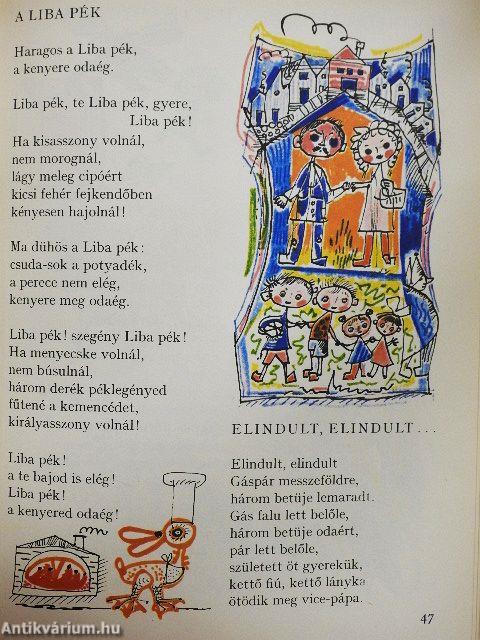 A LIBA PÉK
Haragos a Liba pék,
a kenyere odaég.
Liba pék, te Liba pék, gyere,
Liba pék!
Ha kisasszony volnál,
nem morognál,
lágy meleg cipóért
kicsi fehér fejkendőben
kényesen hajolnál!
Ma dühös a Liba pék:
csuda-sok a potyadék,
a perece nem elég,
kenyere meg odaég.
Liba pék! szegény Liba pék!
Ha menyecske volnál,
nem búsulnál,
három derék péklegényed
fűtené a kemencédet,
királyasszony volnál!
Liba pék!
a te bajod is elég!
Liba pék!
a kenyered odaég!
ELINDULT, ELINDULT...
Elindult, elindult
Gáspár messzeföldre,
három betüje lemaradt.
Gás falu lett belőle,
három betüje odaért,
pár lett belőle,
született öt gyerekük,
kettő fiú, kettő lányka
ötödik meg vice-pápa.
47
Antikvárium.hu